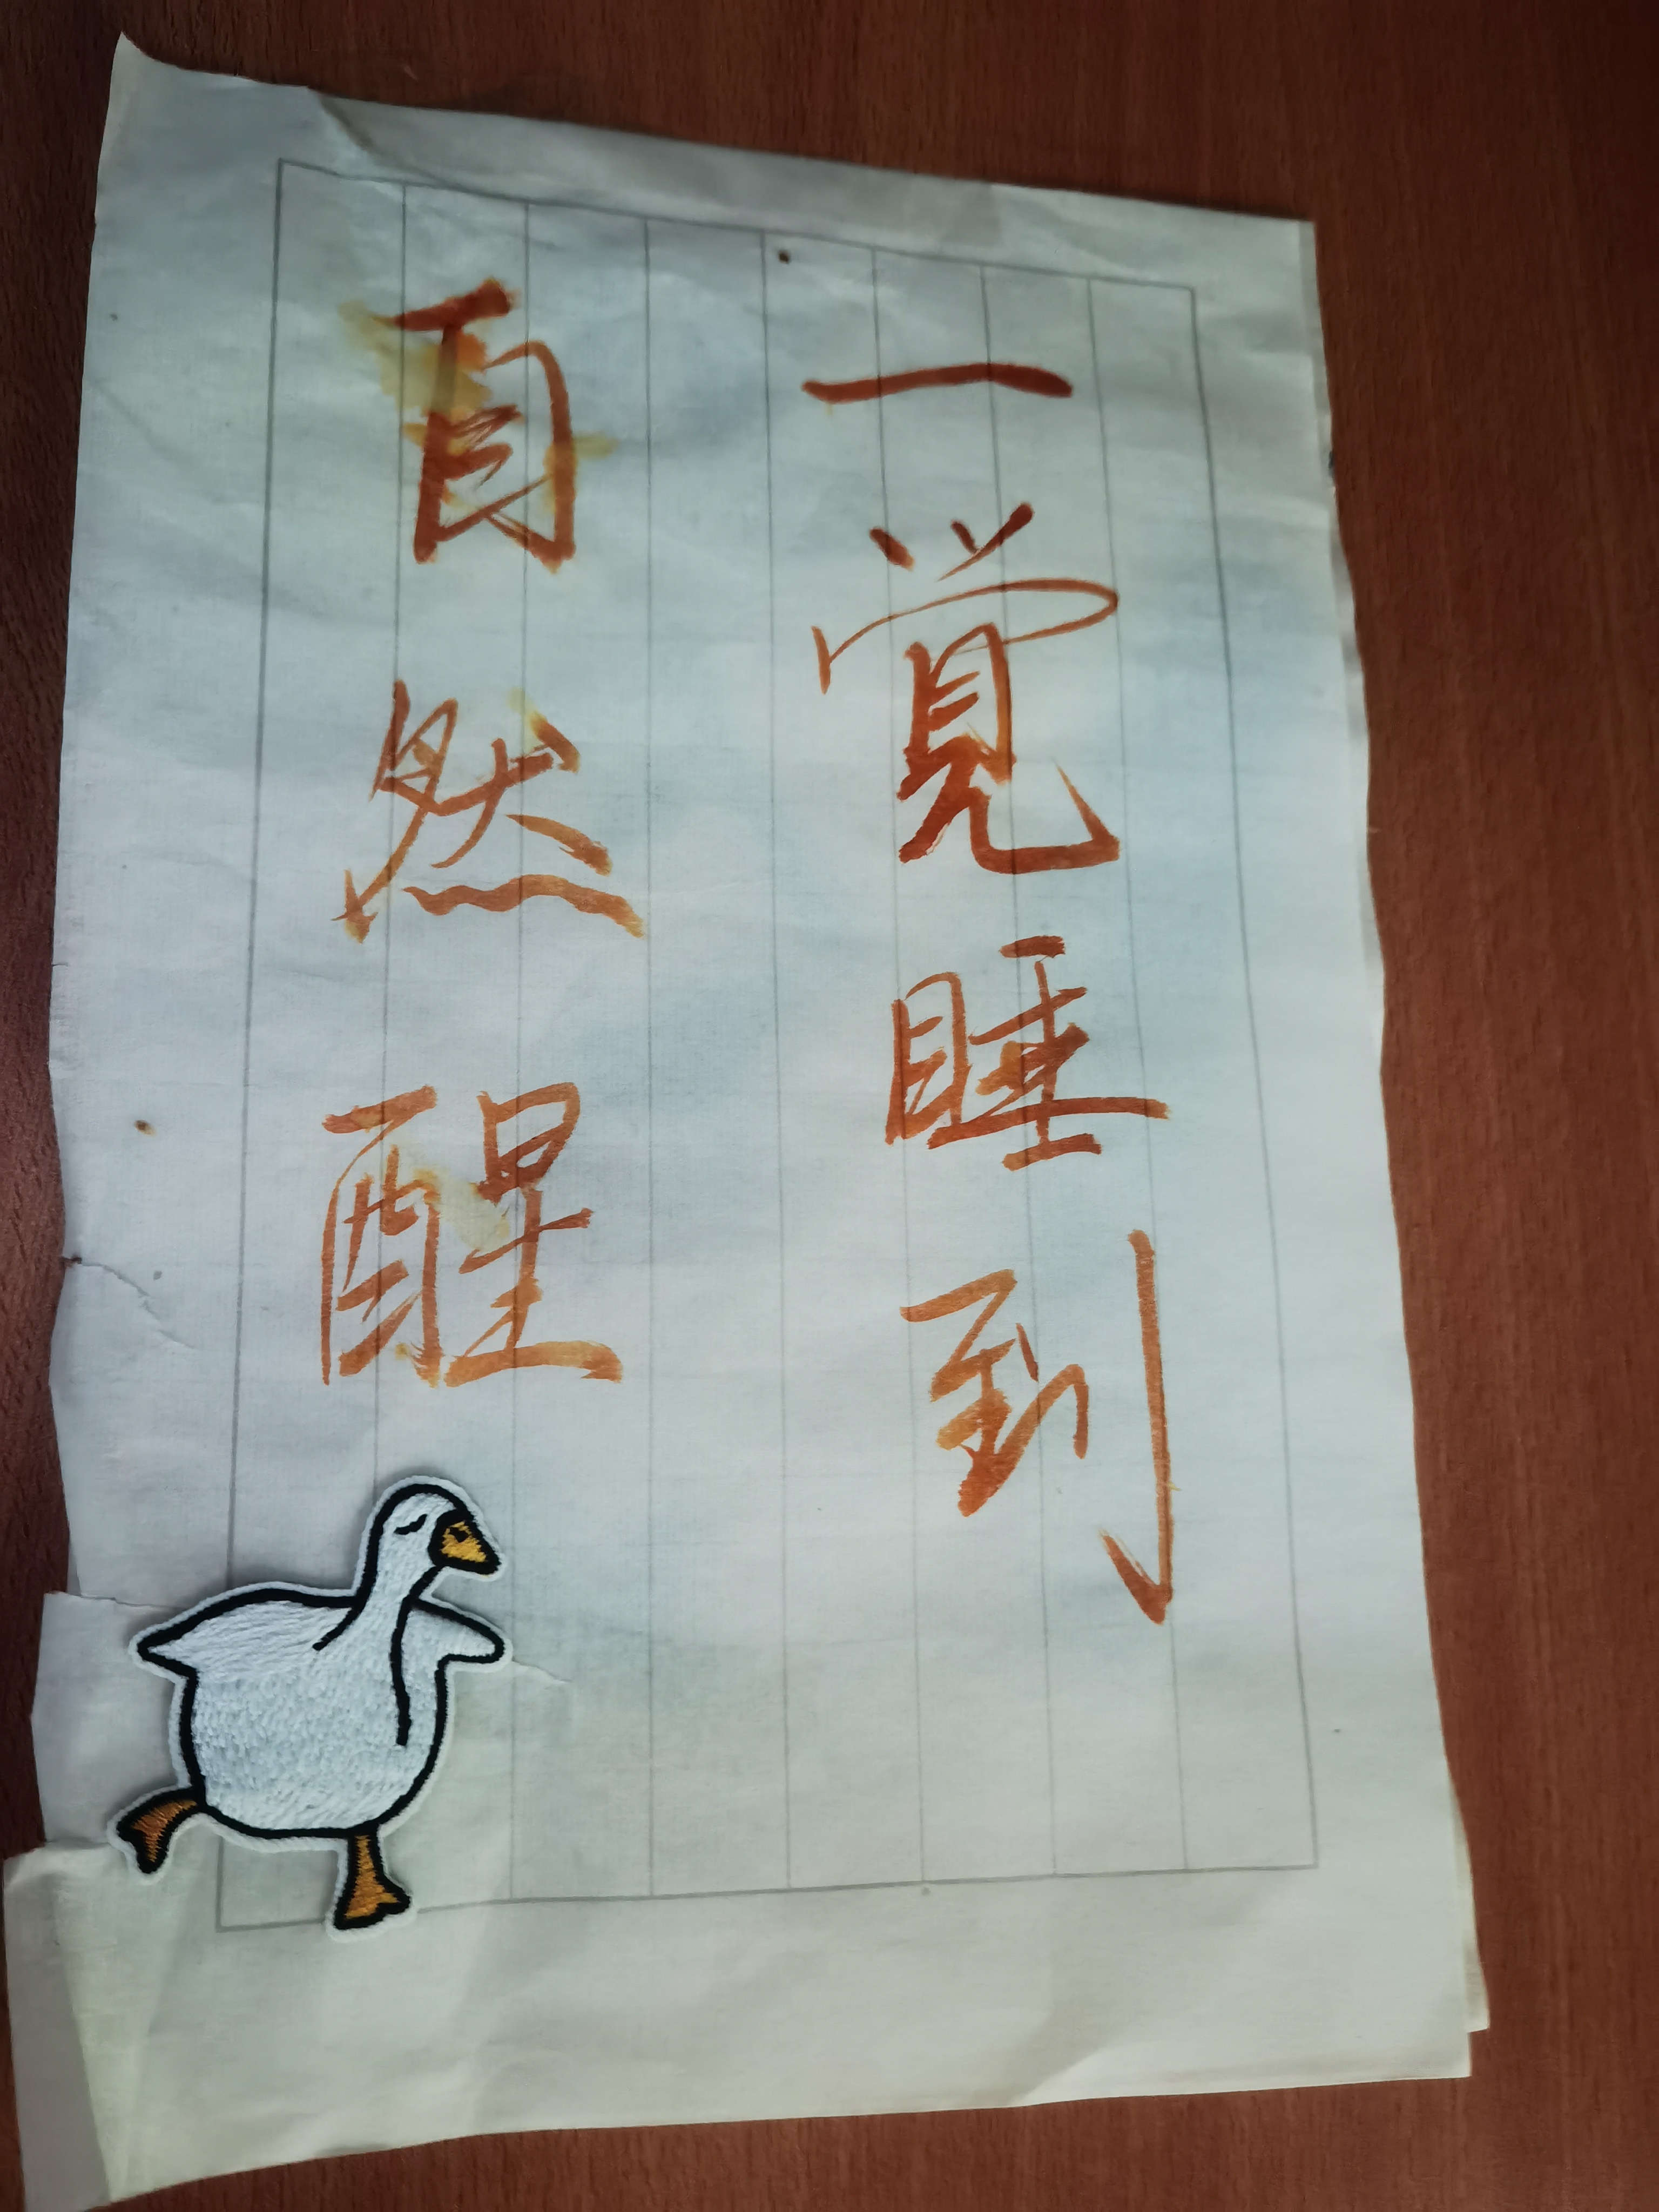 一覚睡到
自然醒